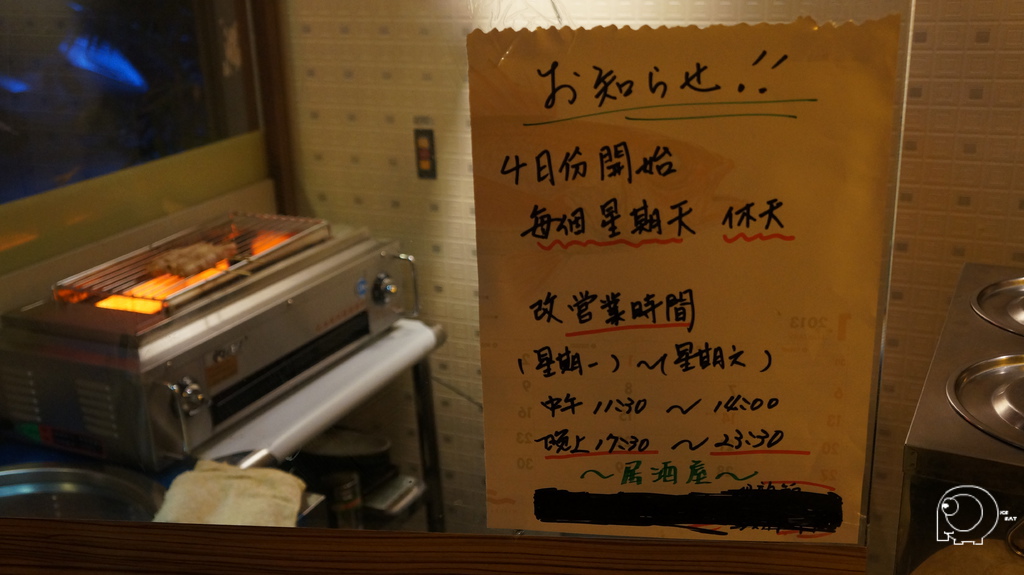 お知らせ!!
4日份開始
每個星期天 休天
改営業時間
(星期一)~(星期六)
中午 11:30 ~ 14:00
晚上 17:30 ~ 23:30
~居酒屋~
2013
ICE
EAT